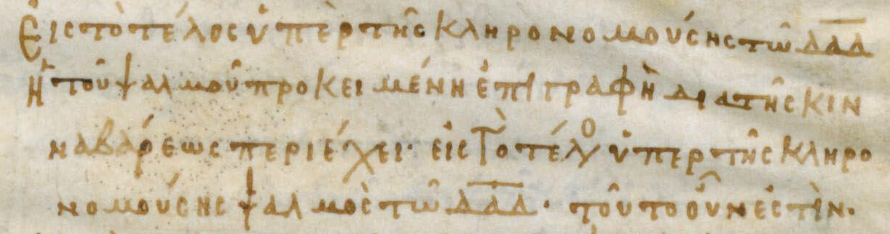 Εἰς τὸ τέλος ὑπὲρ τῆς κληρονομούσης τῶ δαδ
ἡ τοῦ ψαλμοῦ προκειμένη ἐπιγραφὴ διὰ τῆς κιν
ναβάρεως περιέχει· εἰς τὸ τέλο ὑπερ τῆς κληρο
νομούσης ψαλμὸς τῶ δαδ· τοῦτο οὖν ἐστὶν·